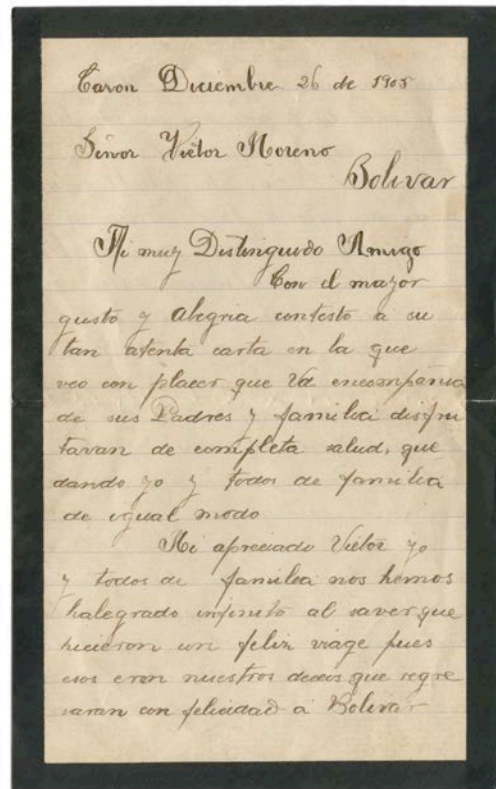 Caron Diciembre 26 de 1905
Señor Victor Moreno
Bolivar
Mi muy Distinguido Amigo
Con el mayor
gusto y alegria contesto a su
tan atenta carta en la que
veo con placer que Vd encompañia
de sus Padres y familia disfru
taran de completa salud, que
dando yo y todos de familia
de igual modo
Mi apreciado Victor yo
y todos de familia nos hemos
halegrado infinito al saver que
hicieron un feliz viage pues
esos eran nuestros deceos que regre
saran con felicidad a Bolivar